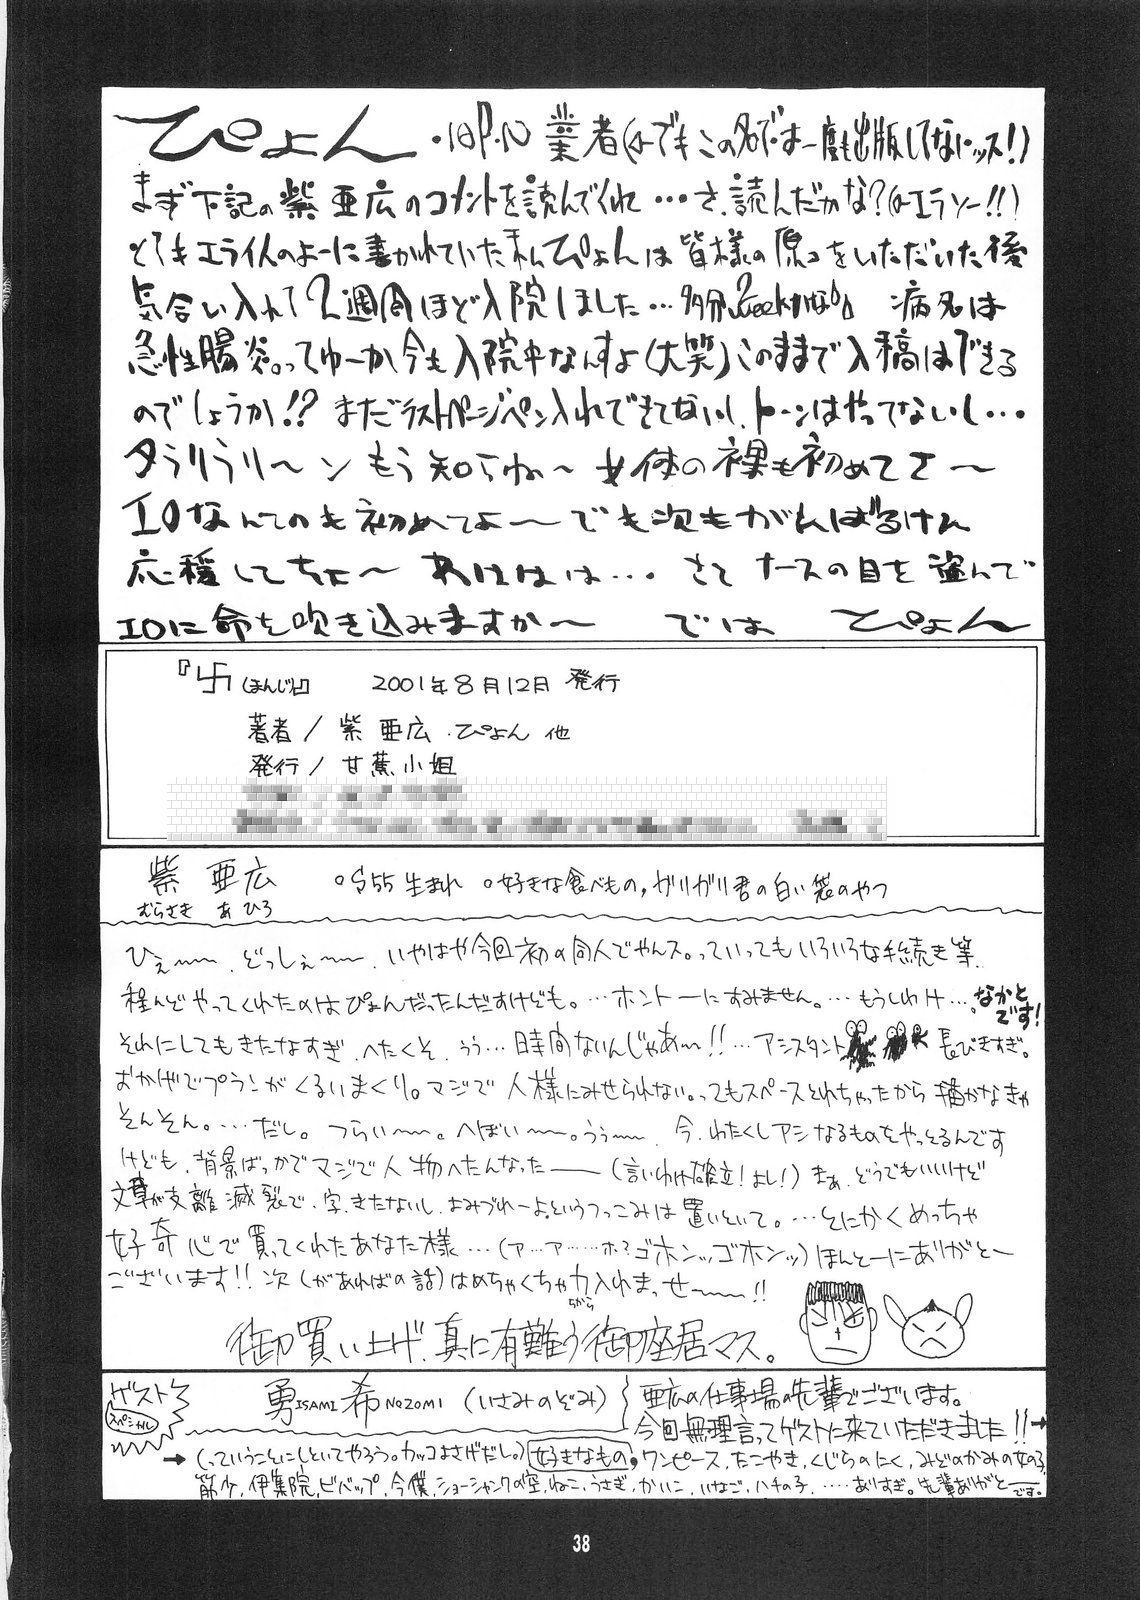 ぴょん 業者(でもこの名では一度も出版してないッス!)
まず下記の紫亜広のコメントを読んでくれ…さ、読んだかな?(エラソー!!)
とてもエライ人のよーに書かれていた私ぴょんは皆様の原コをいただいた後
気合い入れて2週間ほど入院しました…多分 病名は
急性腸炎。ってゆーか今も入院中なんすよ(大笑)このままで入稿はできる
のでしょうか!?まだラストページペン入れできてないし、トーンはやってないし…
タラリラリ〜ンもう知らね〜女体の裸も初めてさ〜
エロなんてのも初めてよ〜でも次もがんばるけん
応援してちょ〜あははは…さてナースの目を盗んで
エロに命を吹き込みますか〜 では ぴょん
『卐(まんじ)』 2001年8月12日 発行
著者/紫 亜広・ぴょん 他
発行/甘蕉小姐
紫 亜広 。S55生まれ 。好きな食べもの,ガリガリ君の白い袋のやつ
むらさき あ ひろ
ひぇ〜〜、どっしぇ〜〜、いやはや今回初の同人でやんス。っていってもいろいろな手続き等
殆んどやってくれたのはぴょんだったんだすけども。…ホントーにすみません。…もうしわけ…なかとです!
それにしてもきたなすぎ、へたくそ、うぅ…時間ないんじゃあ〜!!…アシスタント 長びきすぎ。
おかげでプランがくるいまくり。マジで人様にみせられない。ってもスペースとれちゃったから描かなきゃ
そんそん。…だし。つらい〜。へぼい〜。うぅ〜、今、わたくしアシなるものをやっとるんです
けども、背景ばっかでマジで人物へたんなったーー(言いわけ確立!よし!)まぁ、どうでもいいけど
文章が支離滅裂で、字、きたないし、よみづれーよ、というつっこみは置いといて。…とにかくめっちゃ
好奇心で買ってくれたあなた様…(ア…ア……ホ?ゴホンッッゴホンッ)ほんとーにありがとー
ございます!!次(があればの話)はめちゃくちゃ力入れまっせ〜〜!!
ちから
御買い上げ、真に有難う御座居マス。
ゲスト 勇ISAMI希NOZOMI(いさみのぞみ) 亜広の仕事場の先輩でございます。
スペシャル 今回無理言ってゲストに来ていただきました!!→
→(っていうことにしといてやろう。カッコよさげだし。)好きなもの,ワンピース、たこやき、くじらのにく、みどのかみの女の子、
筋少、伊集院、ビバップ、今僕、ショーシャンクの空、ねこ、うさぎ、かいこ、いなご、ハチの子、……ありすぎ。先輩ありがとーです。
38